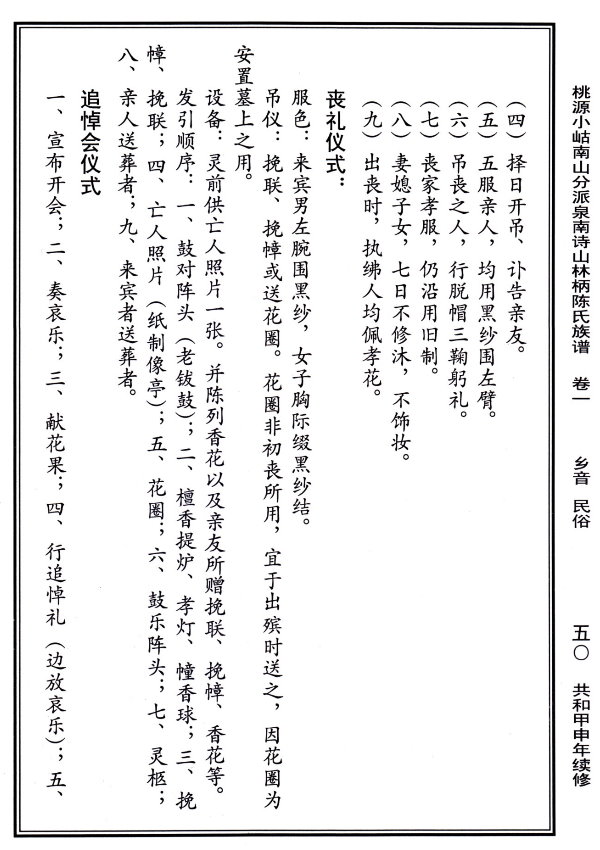 桃源小岵南山分派泉南诗山林柄陈氏族谱 卷一 乡音 民俗 五〇 共和甲申年续修
（四）择日开吊、讣告亲友。
（五）五服亲人，均用黑纱围左臂。
（六）吊丧之人，行脱帽三鞠躬礼。
（七）丧家孝服，仍沿用旧制。
（八）妻媳子女，七日不修沐，不饰妆。
（九）出丧时，执绋人均佩孝花。
丧礼仪式：
服色：来宾男左腕围黑纱，女子胸际缀黑纱结。
吊仪：挽联、挽幛或送花圈。花圈非初丧所用，宜于出殡时送之，因花圈为
安置墓上之用。
设备：灵前供亡人照片一张。并陈列香花以及亲友所赠挽联、挽幛、香花等。
发引顺序：一、鼓对阵头（老钹鼓）；二、檀香提炉、孝灯、幢香球；三、挽
幛、挽联；四、亡人照片（纸制像亭）；五、花圈；六、鼓乐阵头；七、灵柩；
八、亲人送葬者；九、来宾者送葬者。
追悼会仪式
一、宣布开会；二、奏哀乐；三、献花果；四、行追悼礼（边放哀乐）；五、